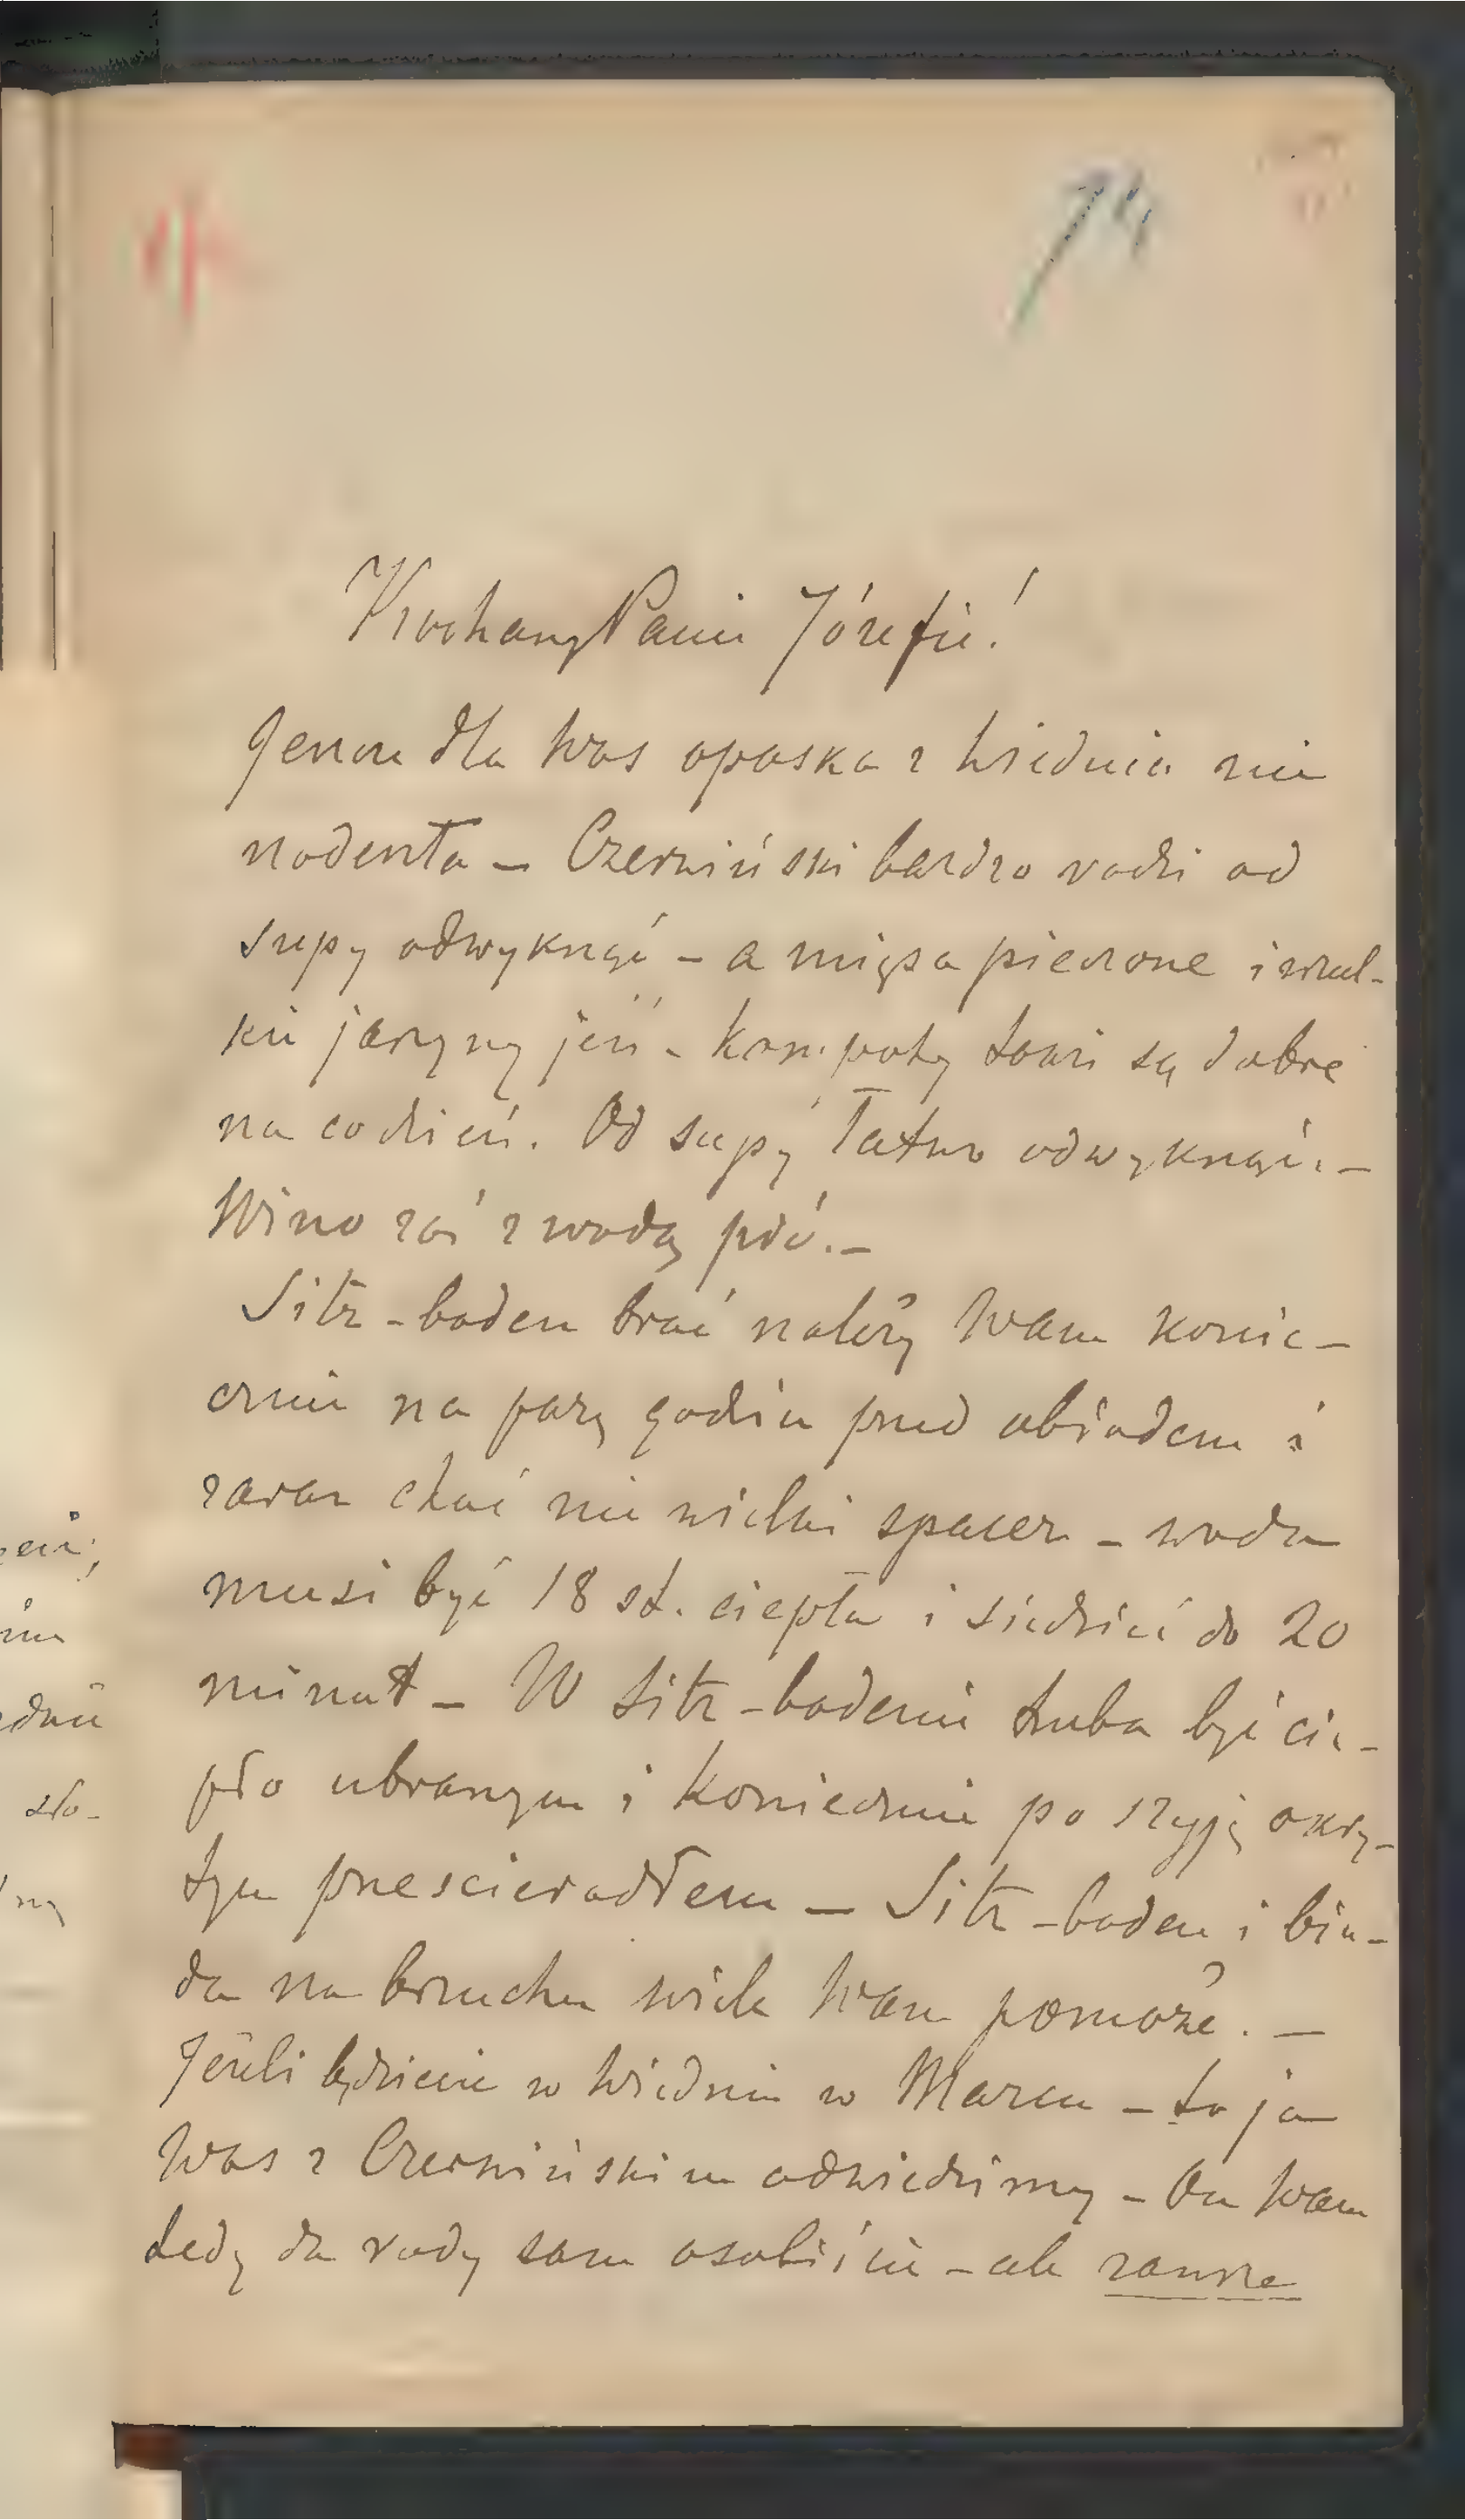 74
Kochany Panie Józefie!
Jeszcze dla Was opaska z Wiednia nie
nadeszła – Czerwiński bardzo radzi od
supy odwyknąć – a mięsa pieczone i wszel-
kie jarzyny jeść – kompoty także są dobre
na codzień. Od supy łatwo odwyknąć. –
Wino zaś z wodą pić. –
Sitz-baden brać należy Wam konie-
cznie na parę godzin przed obiadem i
zaraz choć nie wielki spacer – woda
musi być 18 st. ciepła i siedzieć do 20
minut – W Sitz-badenie trzeba być cie-
pło ubranym i koniecznie po szyję okry-
tym prześcieradłem – Sitz-baden i bin-
da na brzuchu wiele Wam pomoże. –
Jeżeli będziecie w Wiedniu w Marcu – to ja
Was z Czerwińskim odwiedzimy – On Wam
tedy da rady sam osobiście – ale zawsze